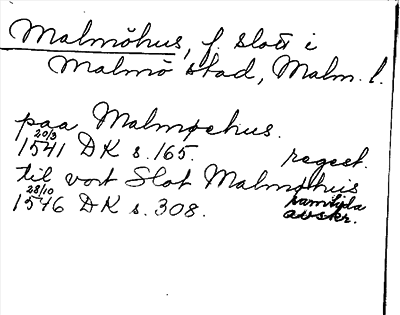 Malmöhus, f. slott i
Malmö stad, Malm. l.
paa Malmøehus.
20/3
1541 DK s. 165. regest.
til vort Slot Malmøhus
28/10
1546 DK s. 308. samtida
avskr.